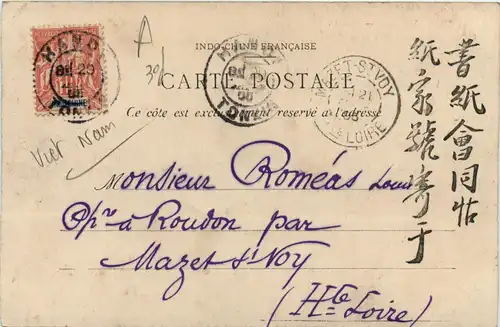 INDO-CHINE FRANÇAISE
CARTE POSTALE
Ce côté est exclusivement réservé à l'adresse
HANOI
TONKIN
MAZET-ST VOY
Hte LOIRE
A
30/
Viet Nam
Monsieur Roméas Louis
à Roudon par
Mazet St Voy
(Hte Loire)
書紙會同帖
紙家號寄于